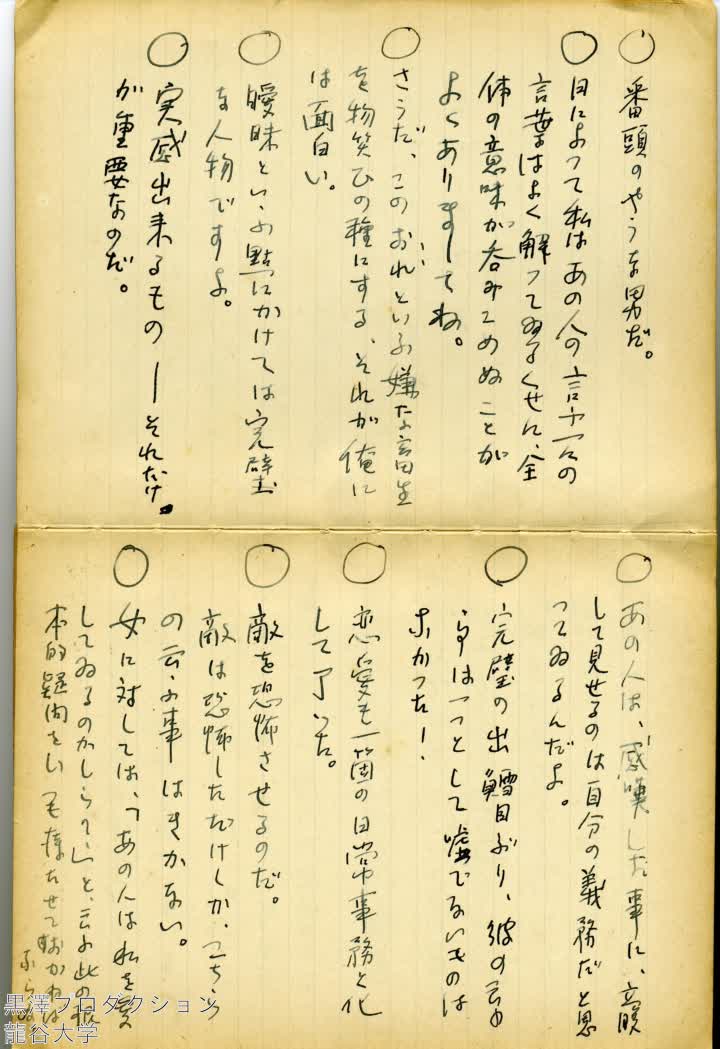 ○ 番頭のやうな男だ。
○ 日によつて私はあの人の言ふ
言葉はよく解つてゐるくせに、全
体の意味が呑みこめぬことが
よくありましてね。
○ さうだ、このおれといふ嫌な畜生
を物笑ひの種にする、それが俺に
は面白い。
○ 曖昧といふ點にかけては完璧
な人物ですよ。
○ 実感出来るもの ― それだけ
が重要なのだ。
○ あの人は、感嘆した事に、
して見せるのは自分の義務だと思
つてゐるんだよ。
○ 完璧の出鱈目ぶり、彼の云ふ
事は一つとして嘘でないものは
なかつた!
○ 恋愛も一箇の日常事務と化
して了つた。
○ 敵を恐怖させるのだ。
敵は恐怖しただけしか、こちら
の云ふ事はきかない。
○ 女に対しては、「あの人は私を愛
してゐるのかしら?」と、云ふ此の根
本的疑問をいつも持たせておかねば
ならぬ
黒澤プロダクション
龍谷大学